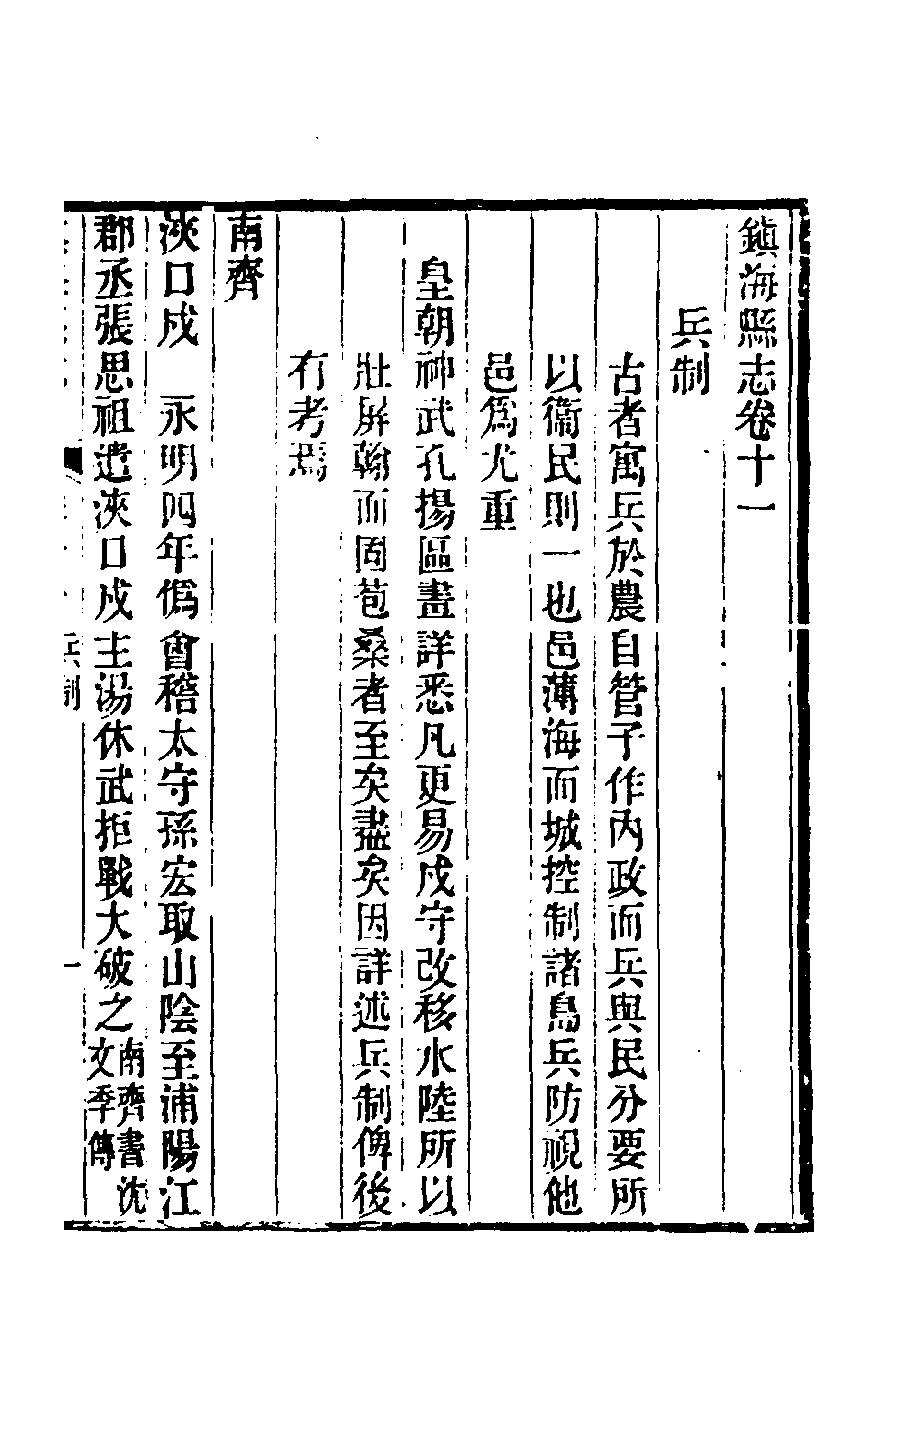 鎮海縣志卷十一
兵制
古者寓兵於農自管子作內政而兵與民分要所
以衞民則一也邑薄海而城控制諸島兵防視他
邑爲尤重
皇朝神武孔揚區畫詳悉凡更易戍守改移水陸所以
壯屏翰而固苞桑者至矣盡矣因詳述兵制俾後
有考焉
南齊
浹口戍　永明四年僞會稽太守孫宏取山陰至浦陽江
郡丞張思祖遣浹口戍主湯休武拒戰大破之南齊書沈
文季傳
兵制
一